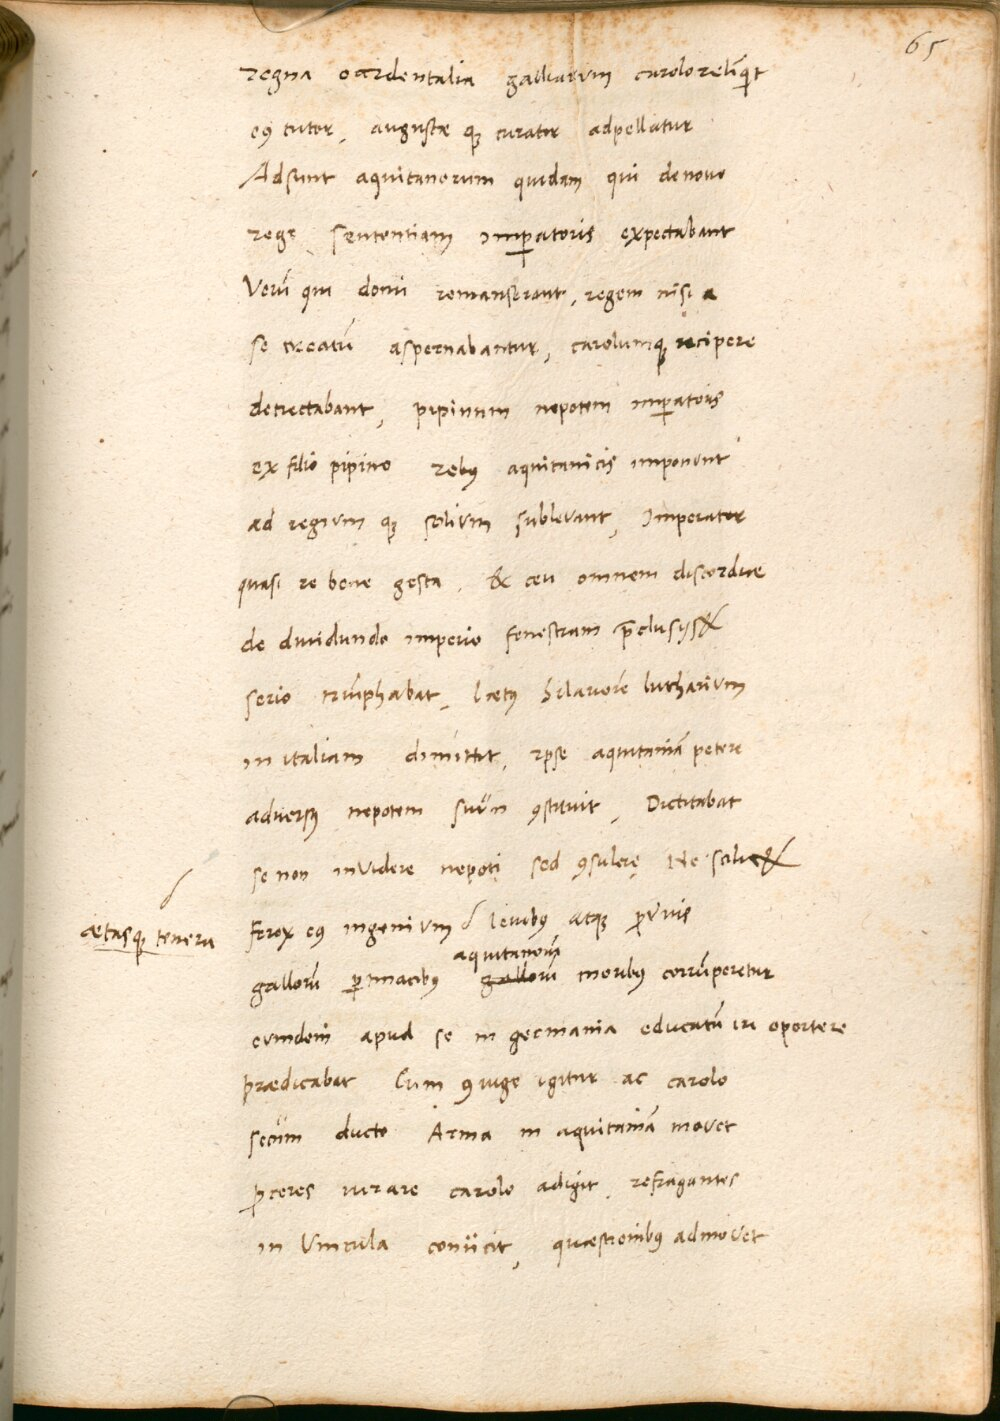 65
regna occidentalia galliarum carolo reliq̃t
eꝰ tutor, augustæ qȝ curator adpellatur
Adsunt aquitanorum quidam qui de nouo
rege sententiam imꝑatoris expectabant
Verũ qui domi remanserant, regem nisi a
se creatũ aspernabantur, carolumqȝ recipere
detrectabant, pipinum nepotem imꝑatoris
ex filio pipino rebꝰ aquitanicis imponunt
ad regium qȝ solium subleuant, Imperator
quasi re bene gesta, & ceu omnem discordiæ
de diuidundo imperio fenestram p̃clusiss&
serio triũphabat, lætꝰ hilariorẽ lutharium
in italiam dimittit, ipse aquitaniã petere
aduersꝰ nepotem suum ꝯstituit, Dictitabat
se non inuidere nepoti sed ꝯsulere Ne soluer&
ætasqȝ tenera
Ferox eꝰ ingenium leuibꝰ atqȝ ꝓteruis
aquitanorũ
gallorũ ꝑtinacibꝰ gallorũ moribꝰ corrũperetur
eumdem apud se in germania educatũ iri oportere
prædicabat Cum ꝯiuge igitur ac carolo
secum ducto Arma in aquitaniã mouet
ꝓceres iurare carolo adigit, refragantes
in Vincula coniicit, quæstionibꝰ admouet